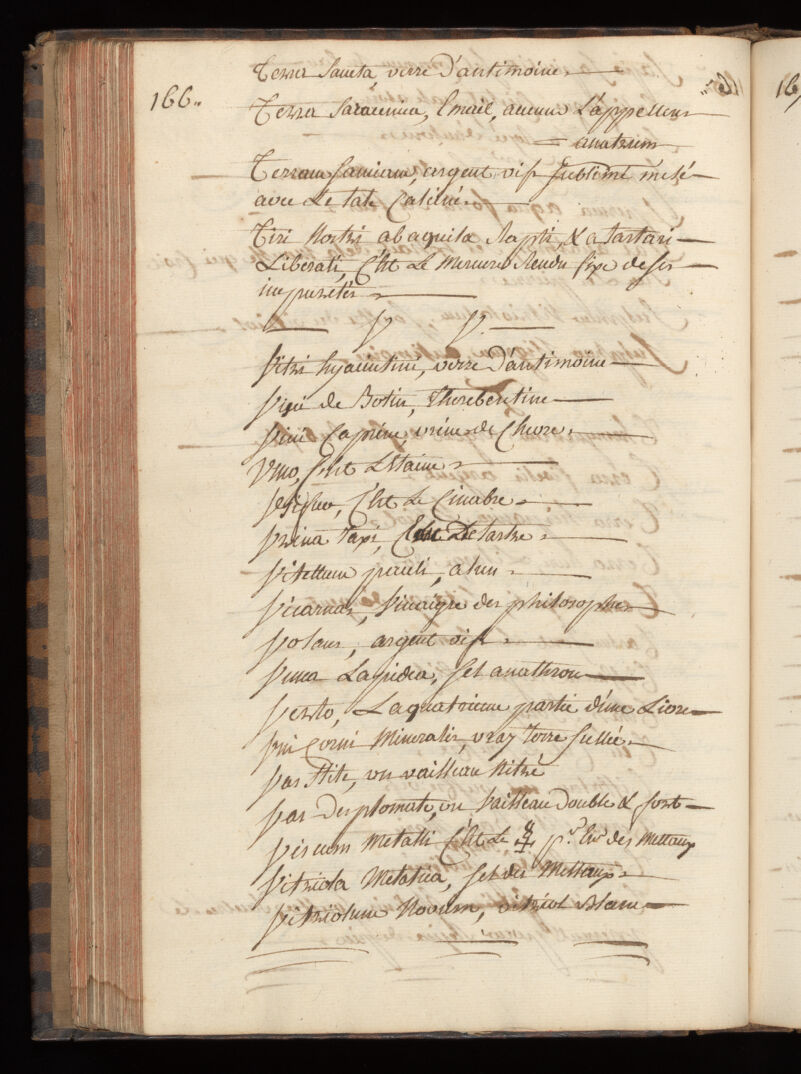 166.
Terra Sancta verre D'antimoine.
Terra Saracenica, Email, aucuns L'appellent
= anatrum
Terram samiam, argent vif sublimé meslé
avec Le talc Calciné.
Tiri Nostri ab aquila Rapti, & a tartari
Liberati, C'est Le Mercure Rendu fixe de ses
impuretés
V V.
Vitri hyacintini, verre D'antimoine
de Botin, Therebentine
Vini Caprini, urine de Chevre.
Vino, C'est L'Etaim
C'est Le Cinabre
Vrina Taxi, Le tartre
Vitellum pauli, alun
Vinaigre des philosophes
Volans, argent vif
Lapidea, sel anathron
Vento, La quatrieme partie d'une Livre
Vni Corni Mineralis, vray Terre sellée.
Vas Stile, un vaisseau Nitré
Vas Desplomate, un Vaisseau Double & fort
Viscum Metalli C'est Le des Mettaux
Vitriola Metalica, sel des Mettaux
Vitriolum Novum, vitriol Blanc